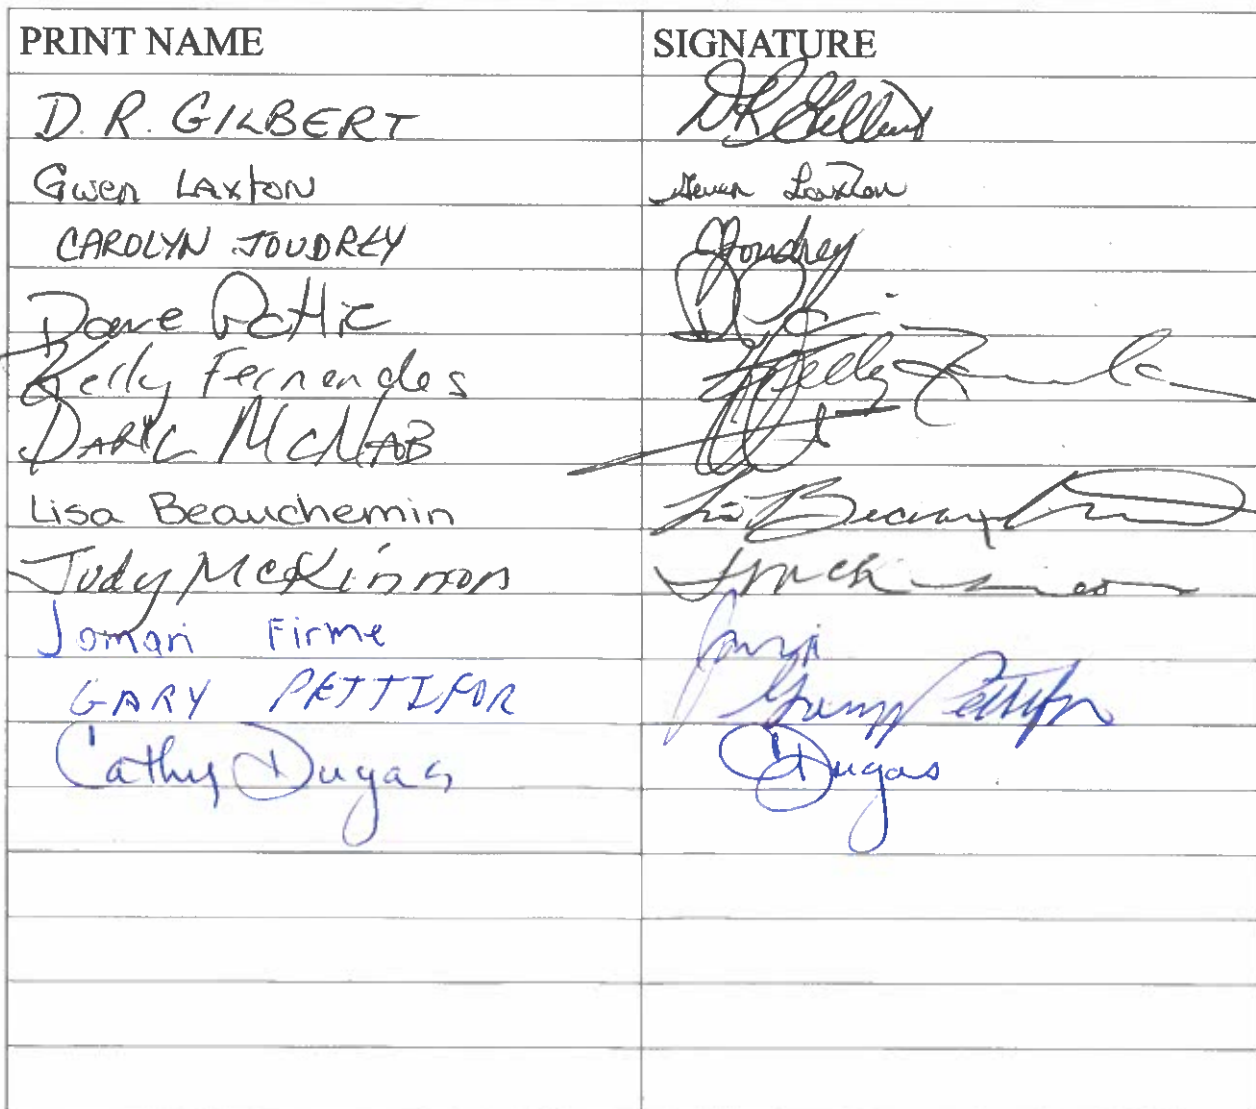 PRINT NAME SIGNATURE
D. R. GILBERT DR Gilbert
Gwen LAXTON Gwen Laxton
CAROLYN JOUDREY CJoudrey
Dave
Kelly Fernandes Kelly
DARYL MCNAB
Lisa Beauchemin Lisa
Judy McKinnon
Jomari Firme
GARY PETTIFOR Gary Pettifor
Cathy Dugas CDugas